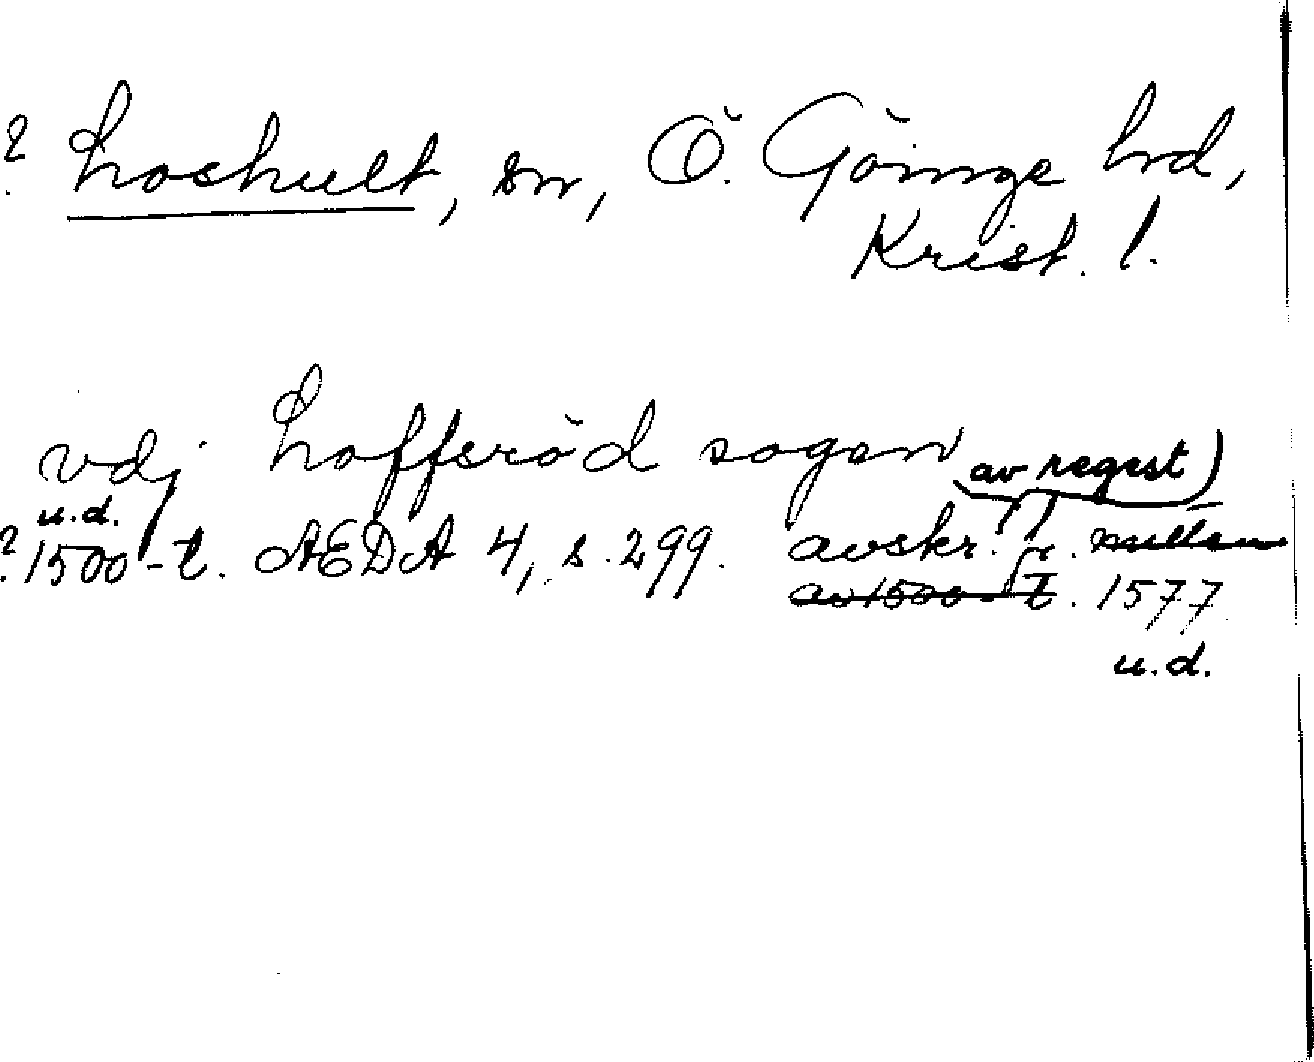 ? Loshult, sn, Ö. Göinge hrd,
Krist. l.
vdj Lofferöd sogen
u.d.
av regest)
? 1500-t. AEDA 4, s. 299. avskr. fr.
av 1500-t. 1577
u.d.